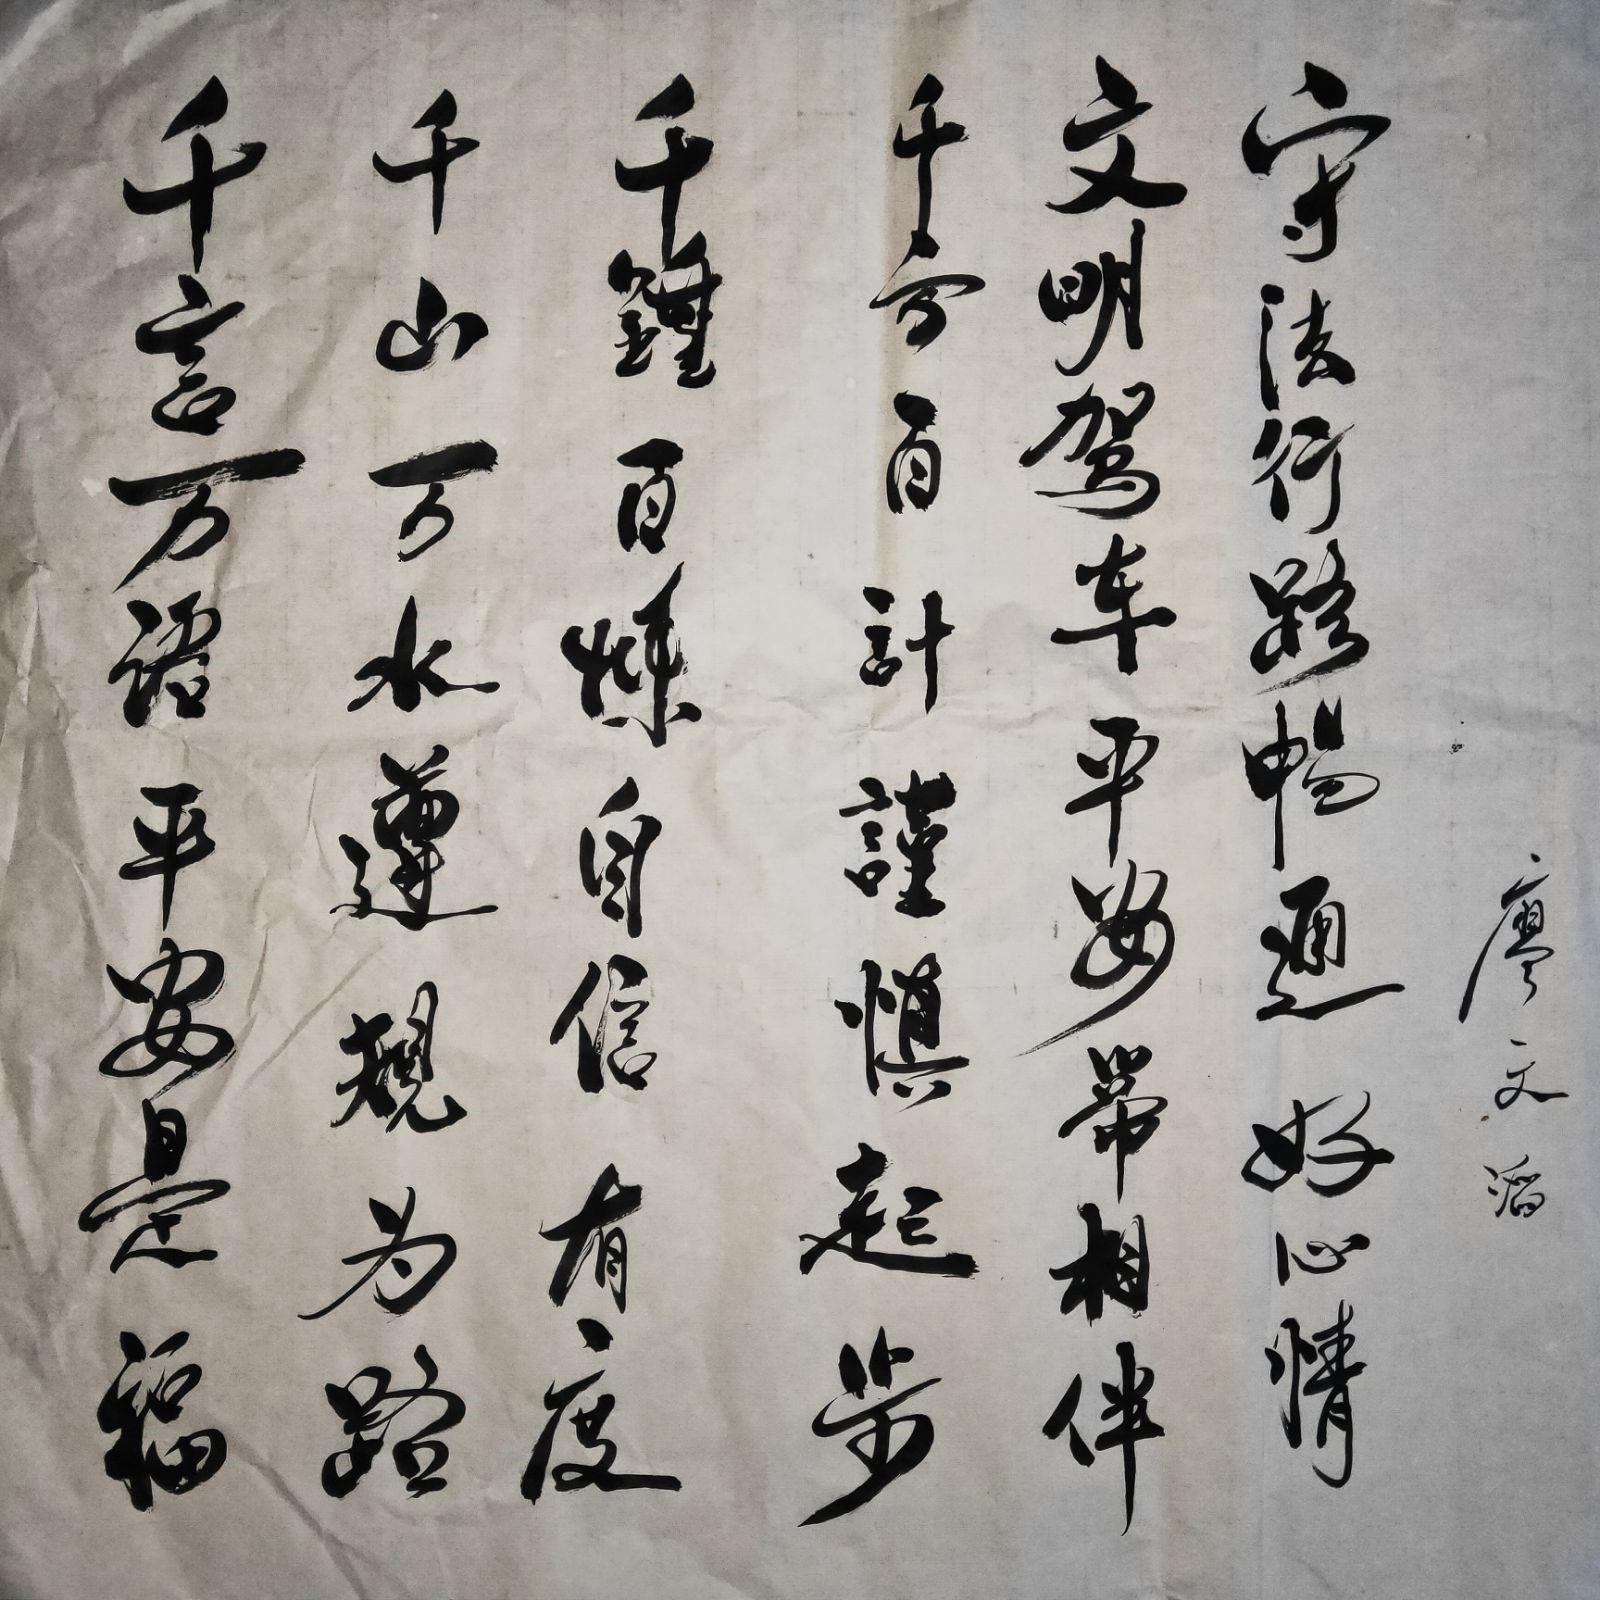 千言万语平安是福
千山万水遵規为路
千錘百煉自信有度
千方百計謹慎起步
文明驾车平安帶相伴
守法行路暢通好心情
廖文滔